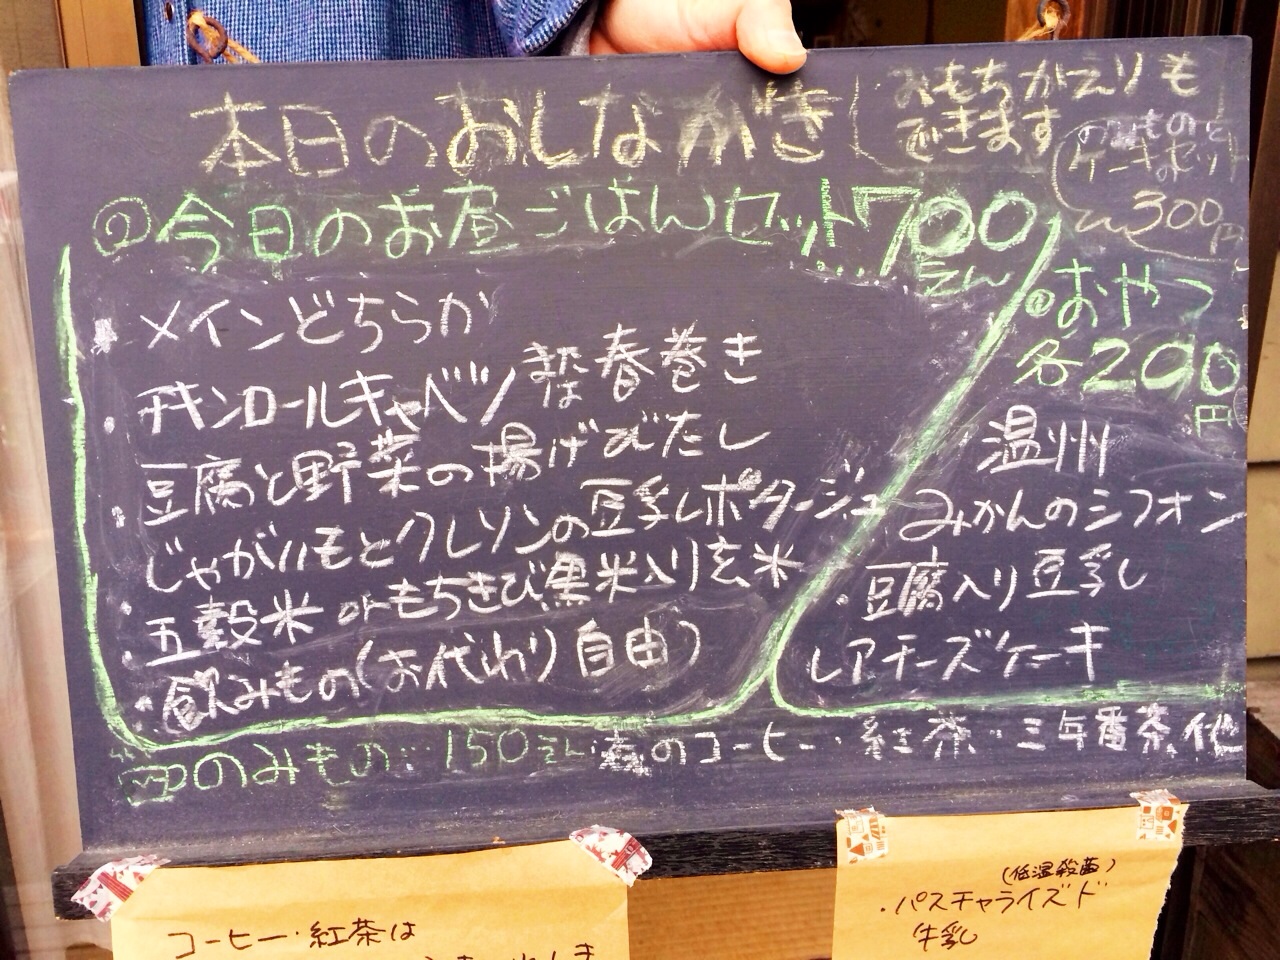 本日のおしながき
おもちがえりも
できます
のみものと
ケーキのセット
300円
今日のお昼ごはんセット700
えん
・メインどちらか
・チキンロールキャベツ/ 春巻き
・豆腐と野菜の揚げびたし
・じゃがいもとクレソンの豆乳ポタージュ
・五穀米orもちきび黒米入り玄米
・飲みもの(お代わり自由)
おやつ
各200円
・温州
みかんのシフォン
・豆腐入り豆乳
レアチーズケーキ
のみもの…150えん 森のコーヒー・紅茶・三年番茶、他
コーヒー・紅茶は
(低温殺菌)
・パスチャライズド
牛乳